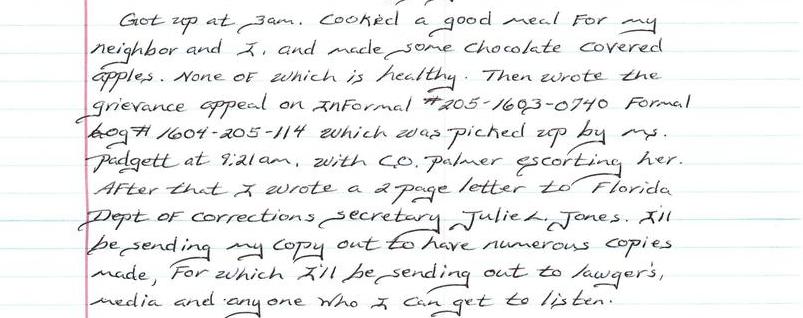 Got up at 3am. Cooked a good meal For my
neighbor and I, and made some chocolate covered
apples. None OF which is healthy. Then wrote the
grievance appeal on InFormal #205-1603-0740 Formal
Log# 1604-205-114 which was picked up by ms.
Padgett at 9:21am, with C.O. Palmer escorting her.
AFter that I wrote a 2 page letter to Florida
Dept OF Corrections secretary Julie L. Jones. I'll
be sending my copy out to have numerous copies
made, For which I'll be sending out to lawyer's,
media and anyone who I can get to listen.